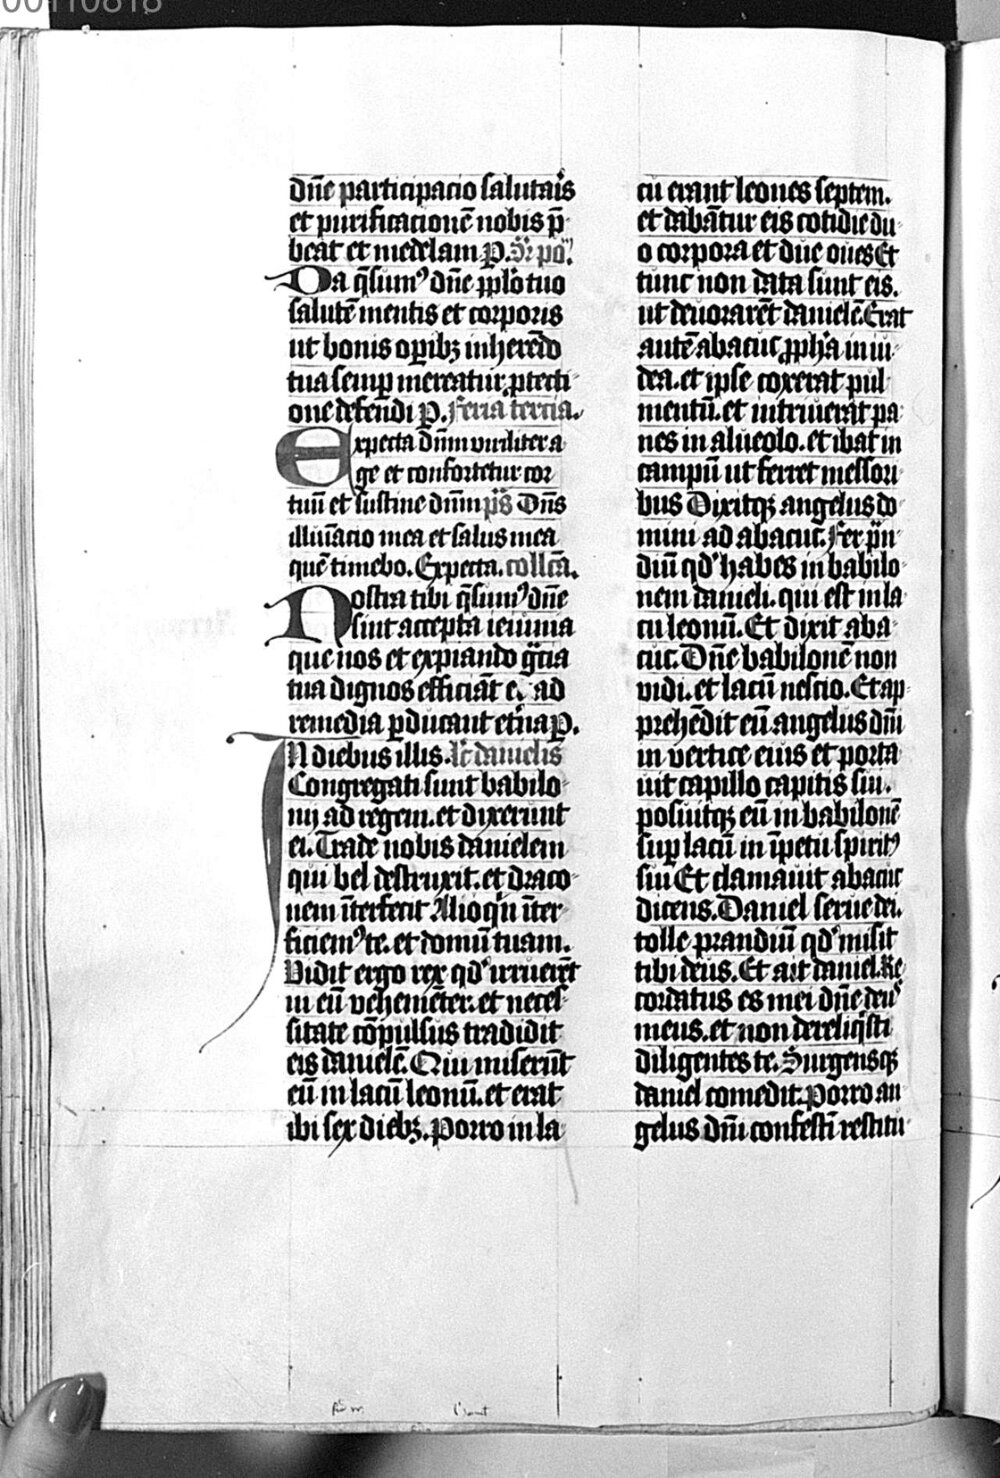 00110818
dn̄e participacio salutaīs
et purificacionē nobis p̄-
beat et medelam P. Sr̄ po᷑.
Da q̄sumꝰ dn̄e pplo tuo
salutē mentis et corporis
ut bonis oꝑibꝫ inherēdo
tua semꝑ mereatur. ꝓtecti-
one defendi P. Feria tercia.
Expecta dn̄m viriliter a-
ge et confortetur cor
tuū et sustine dn̄m p̄s Dn̄s
illuīatio mea et salus mea
quē timebo. Expecta. collcā.
Nostra tibi q̄sumꝰ dn̄e
sint accepta ieiunia
que nos et expiando gͣtia
tua dignos efficiāt e. ad
remedia ꝑducant et̄na P.
In diebus illis. lc̄ danielis
Congregati sunt babilo-
nij ad regem. et dixerunt
ei. Trade nobis danielem
qui bel destruxit. et draco-
nem īterfecit Alioqͥn īter-
ficiemꝰ te. et domū tuam.
Vidit ergo rex qd' irruerēt
in eū vehemēter. et neces-
sitate cōpulsus tradidit
eis danielē. Qui miserūt
eū in lacū leonū. et erat
ibi sex diebꝫ. Porro in la-
cu erant leones septem.
et dabātur eis cotidie du-
o corpora et due oues Et
tunc non data sunt eis.
ut deuorarēt danielē. Erat
autē abacuc ꝓph̄a in iu-
dea. et ipse coxerat pul-
mentū. et intriuerat pa-
nes in alueolo. et ibat in
campū ut ferret messori-
bus Dixitqꝫ angelus do-
mini ad abacuc. Fer pͣn-
diū qd' habes in babilo-
nem danieli. qui est in la-
cu leonū. Et dixit aba-
cuc. Dn̄e babilonē non
vidi. et lacū nescio. Et ap-
prehēdit eū angelus dn̄i
in vertice eius et porta-
uit capillo capitis sui.
posuitqꝫ eū in babilonē
suꝑ lacū in īpetu spiritꝰ
sui Et clamauit abacuc
dicens. Daniel serue dei.
tolle prandiū qd' misit
tibi deus. Et ait daniel. Re-
cordatus es mei dn̄e deus
meus. et non dereliqͥsti
diligentes te. Surgensqꝫ
daniel comedit. Porro an-
gelus dn̄i confestī restitu-